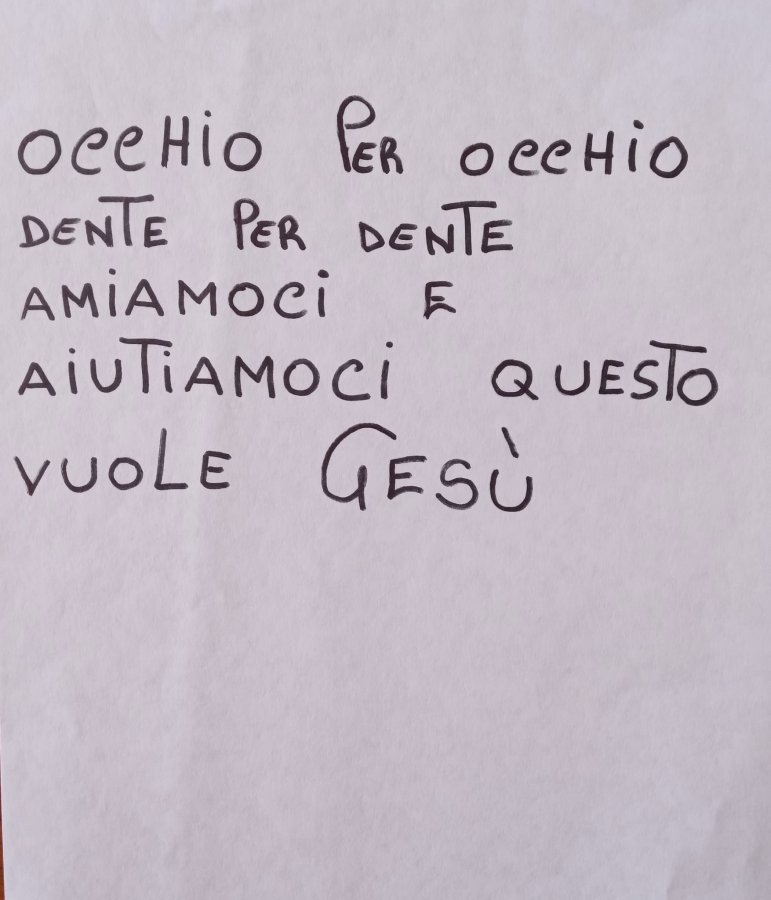 OCCHIO PER OCCHIO
DENTE PER DENTE
AMIAMOCI E
AIUTIAMOCI QUESTO
VUOLE GESÙ